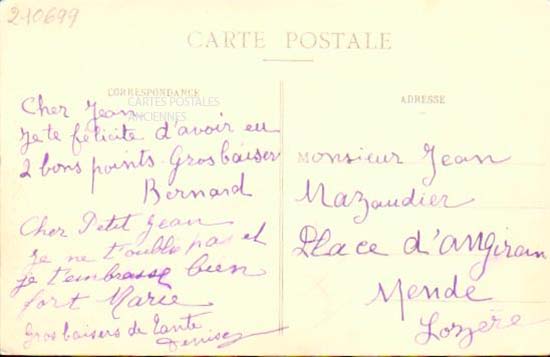 210699
CARTE POSTALE
CORRESPONDANCE
CARTES POSTALES
ANCIENNES
ADRESSE
Cher Jean
Je te félicite d'avoir eu
2 bons points. Gros baisers
Bernard
Cher Petit Jean
Je ne t'oublie pas et
je t'embrasse bien
fort Marie
Gros baisers de tante
Denise
Monsieur Jean
Mazaudier
Place d'Angiran
Mende
Lozère